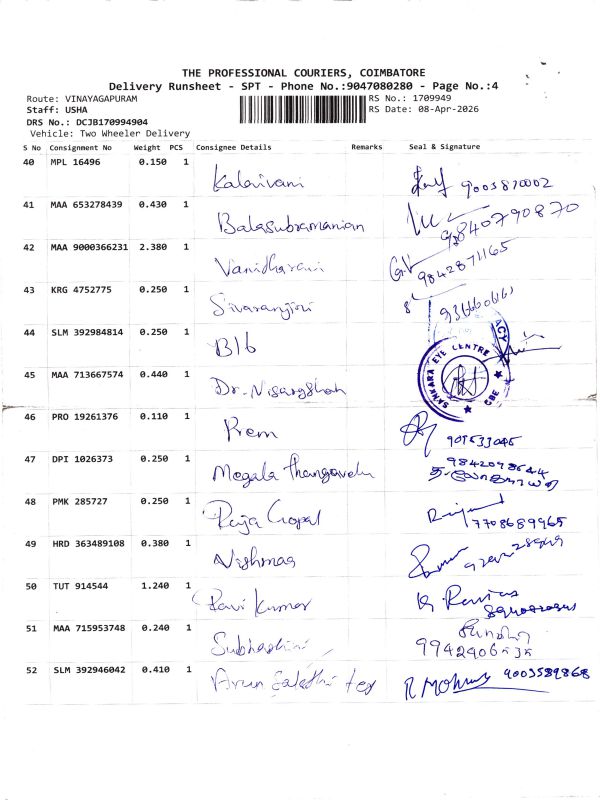 THE PROFESSIONAL COURIERS, COIMBATORE
Delivery Runsheet - SPT - Phone No.:9047080280 - Page No.:4
Route: VINAYAGAPURAM RS No.: 1709949
Staff: USHA RS Date: 08-Apr-2026
DRS No.: DCJB170994904
Vehicle: Two Wheeler Delivery
S No Consignment No Weight PCS Consignee Details Remarks Seal & Signature
40 MPL 16496 0.150 1
Kalaivani 9003870002
41 MAA 653278439 0.430 1
Balasubramanian 9840790870
42 MAA 9000366231 2.380 1
Vanidharani 9842871165
43 KRG 4752775 0.250 1
Sivaranjini
44 SLM 392984814 0.250 1
B16
SANKARA EYE CENTRE CBE
45 MAA 713667574 0.440 1
Dr. Nisargshah
46 PRO 19261376 0.110 1
Prem
47 DPI 1026373 0.250 1
Megala Thangavelu
48 PMK 285727 0.250 1
Raja Gopal 7708689965
49 HRD 363489108 0.380 1
50 TUT 914544 1.240 1
Ravi Kumar
51 MAA 715953748 0.240 1
Subhashini
52 SLM 392946042 0.410 1
Arun 9003589868